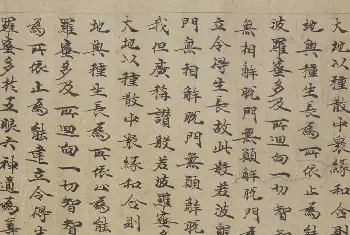 大地以種散中衆緣和合則
地與種生長為所依止為能
波羅蜜多及所迴向一切智智
無相解脫門無願解脫門
立令得生長故此般若波羅
門無相解脫門無願解脫
我但廣稱讚般若波羅蜜多
大地以種散中衆緣和合則
地與種生長為所依止為能
羅蜜多及所迴向一切智智
為所依止為能建立令得生
羅蜜多於五眼六神通為尊